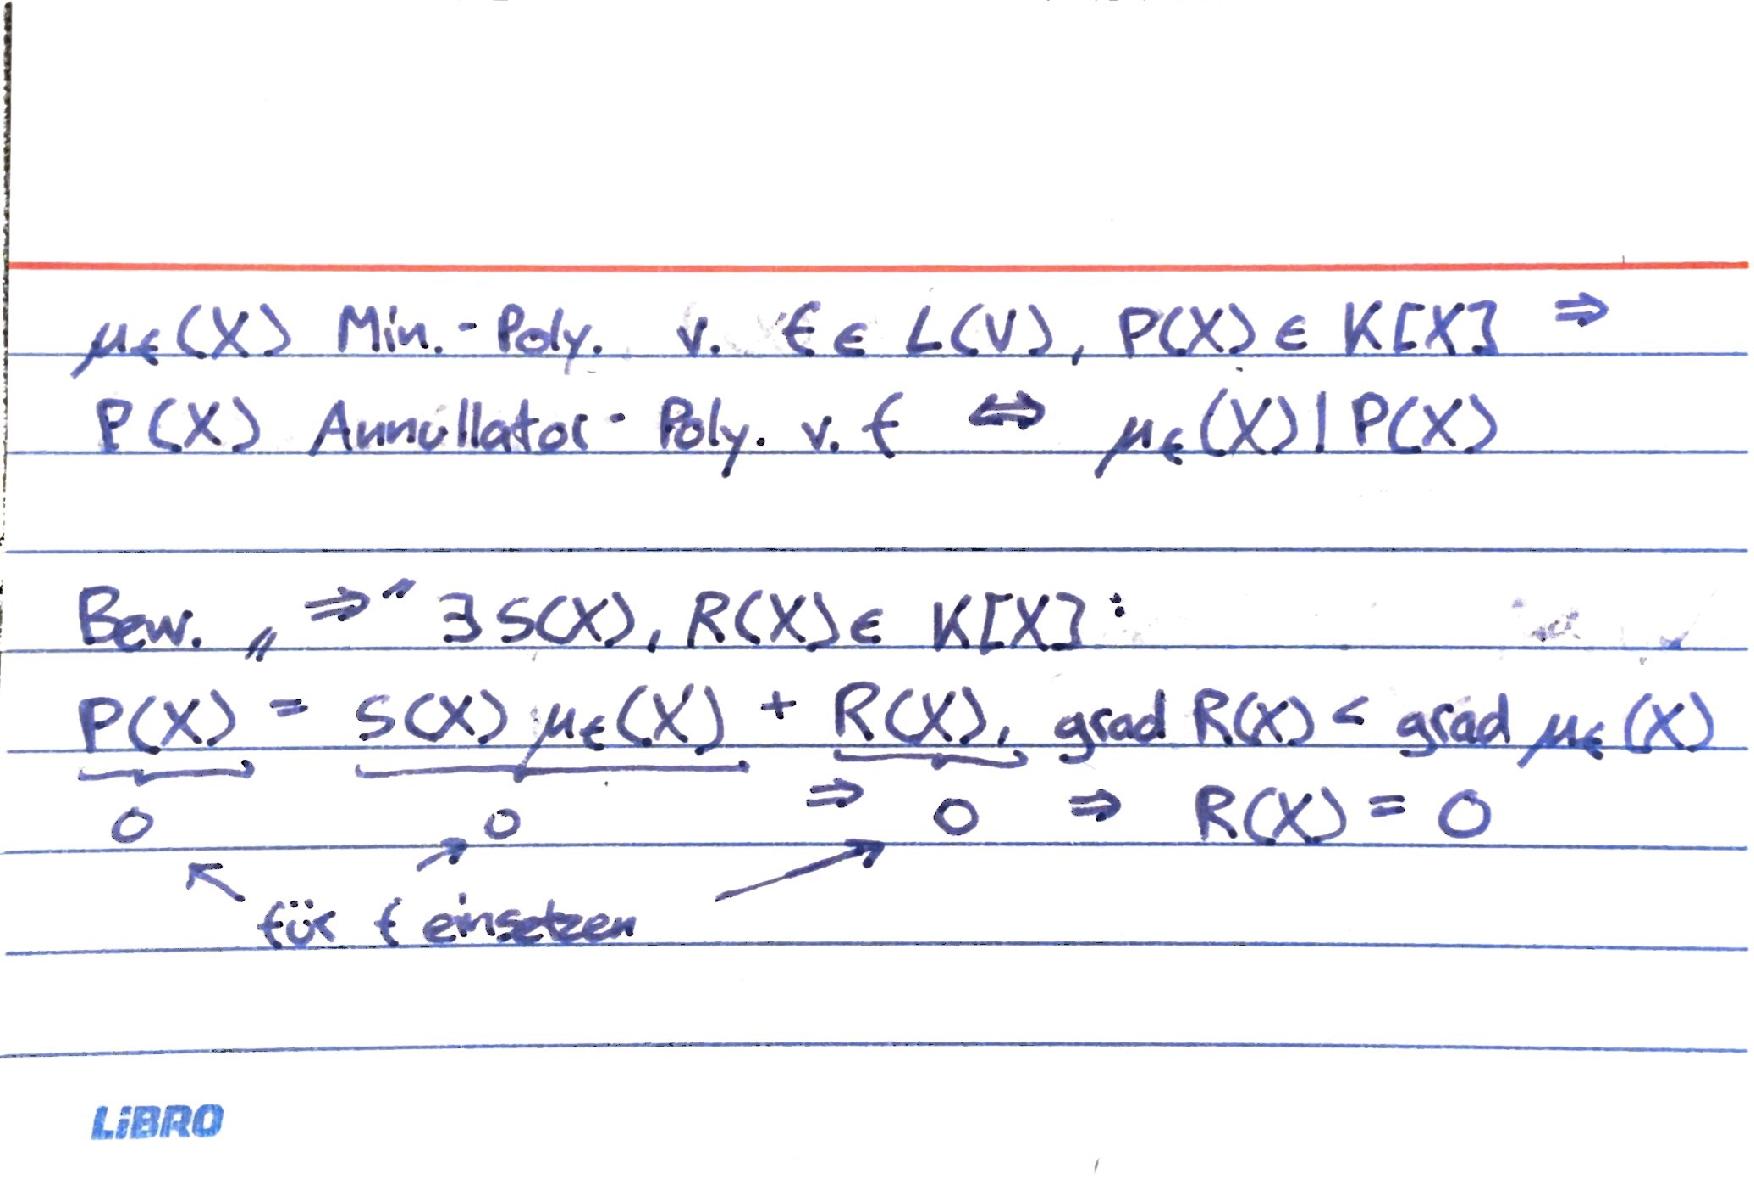 μ_f(X) Min.-Poly. v. f ∈ L(V), P(X) ∈ K[X] ⇒
P(X) Annullator-Poly. v. f ⇔ μ_f(X) | P(X)
Bew. „⇒" ∃ S(X), R(X) ∈ K[X]:
P(X) = S(X) μ_f(X) + R(X), grad R(X) < grad μ_f(X)
0 0 ⇒ 0 ⇒ R(X) = 0
für f einsetzen
LiBRO